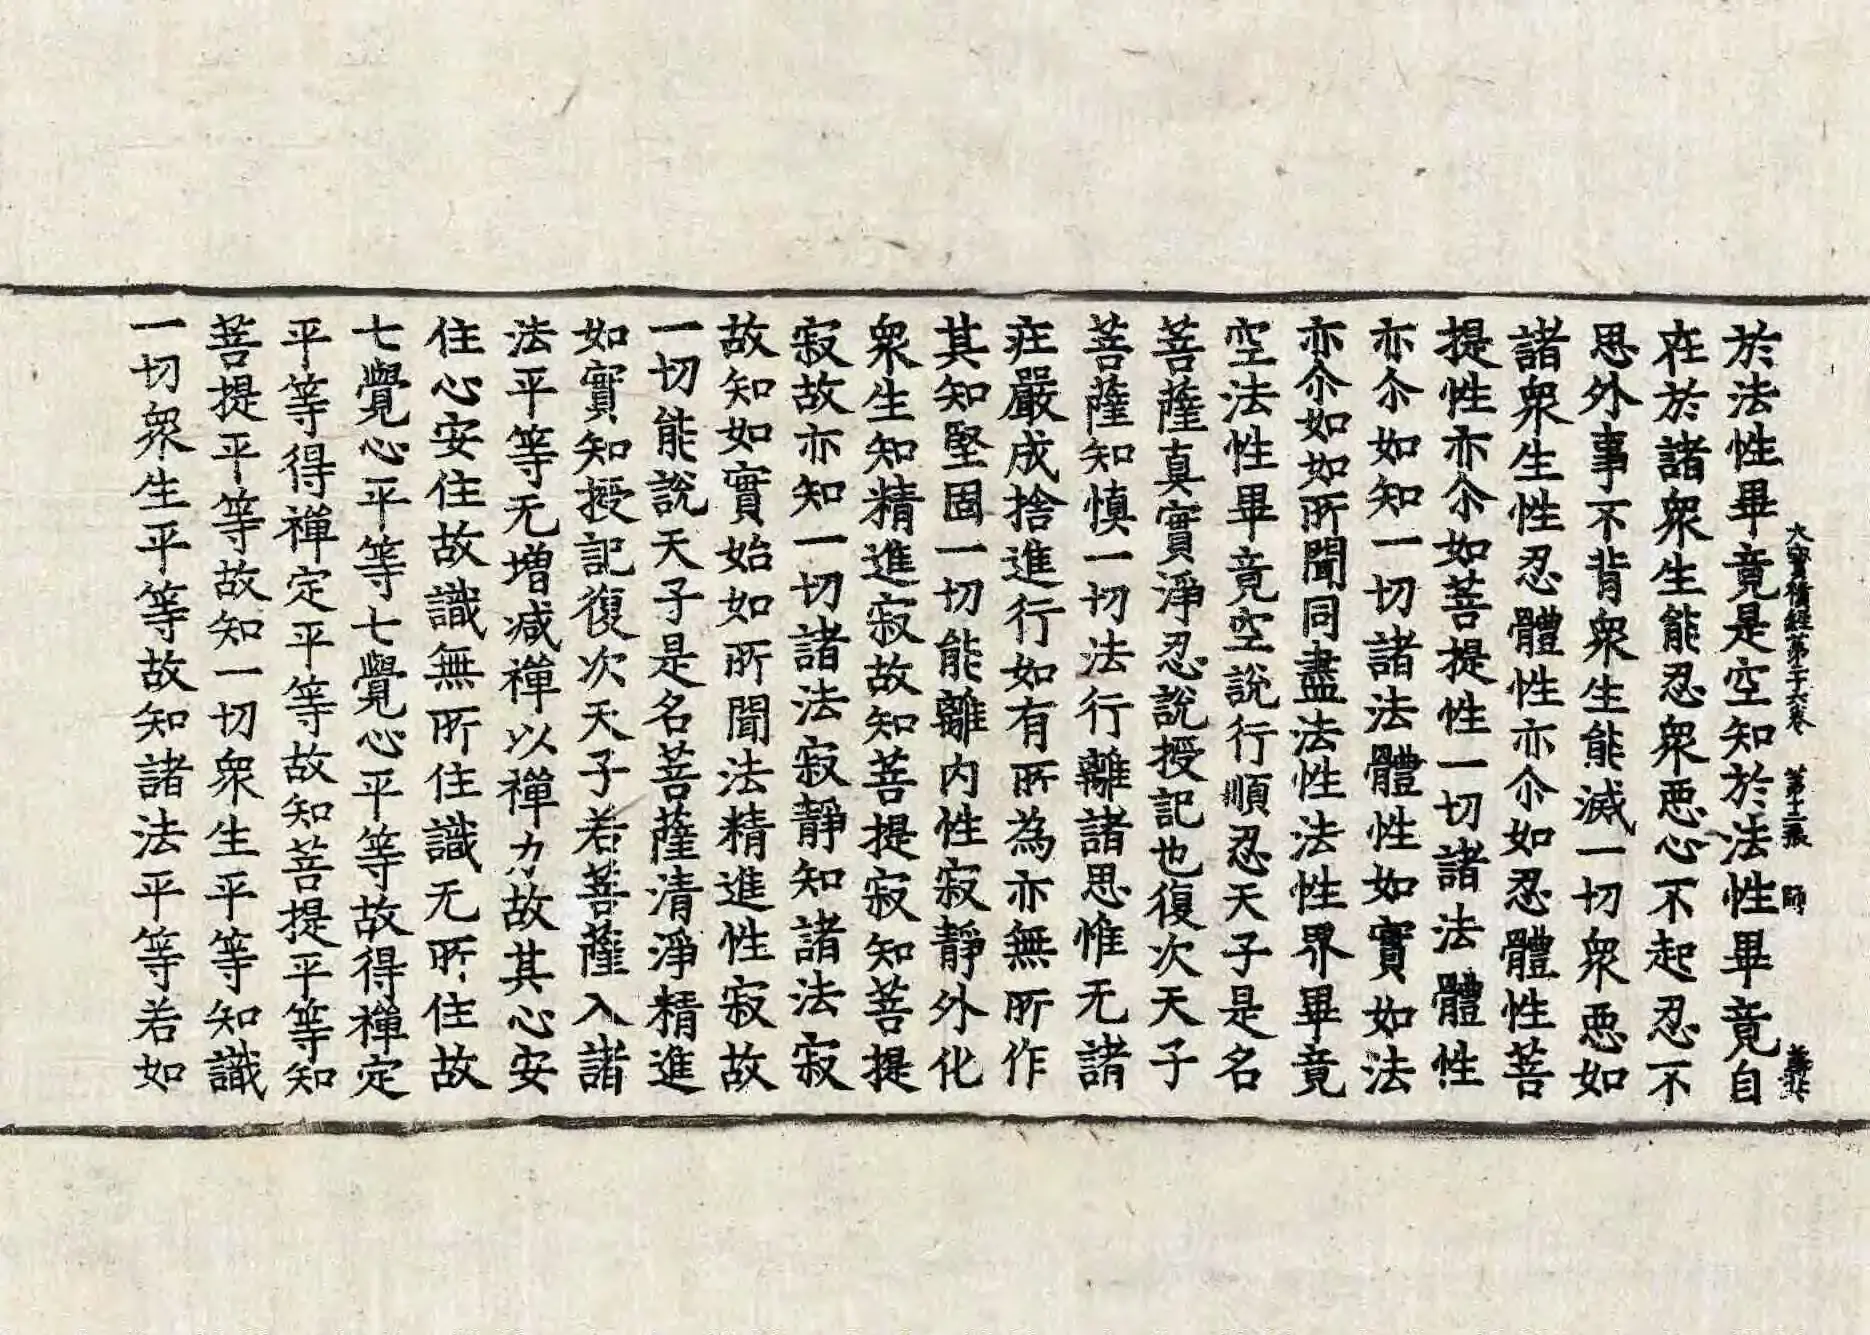 大寶積經第二十六卷 第十二張 師
於法性畢竟是空知於法性畢竟自
在於諸衆生能忍衆恶心不起忍不
思外事不背衆生能滅一切衆恶如
諸衆生性忍體性亦尒如忍體性菩
提性亦尒如菩提性一切諸法體性
亦尒如知一切諸法體性如實如法
亦尒如如所聞同盡法性法性界畢竟
空法性畢竟空說行順忍天子是名
菩薩真實淨忍說授記也復次天子
菩薩知慎一切法行離諸思惟无諸
疘嚴成捨進行如有所為亦無所作
其知堅固一切能離内性寂靜外化
衆生知精進寂故知菩提寂知菩提
寂故亦知一切諸法寂靜知諸法寂
故知如實始如所聞法精進性寂故
一切能說天子是名菩薩清淨精進
如實知授記復次天子若菩薩入諸
法平等无增减禪以禪力故其心安
住心安住故識無所住識无所住故
七覺心平等七覺心平等故得禪定
平等得禪定平等故知菩提平等知
菩提平等故知一切衆生平等知識
一切衆生平等故知諸法平等若如